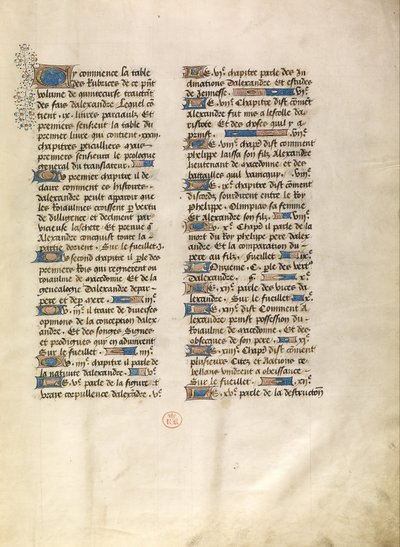 Cy commence la table
des Rubrices de ce pñt
volume de quintecurse traitāt
des fais dalexandre Lequel cō
tient .ix. liures parciaulx Et
premiers sensieut la table du
premier liure qui contient .xxxi.
chapitres particuliers mais
premiers sensieut le prologue
general du translateur
Ou premier chapitre il de
claire comment ces histoires
dalexandre
de dilligence et declinent par
vicieuse laschete Et preuue q̄
Alexandre conquist toute la
partie dorient. Sur le fueillet .i.
Ou second chapitre il ple des
premiers Rois qui regnerent ou
roiaulme de macedone Et de la
genealogie dalexandre depar
pere et depar mere .iiī.
Ou .iiī. il traite de diuerses
opinions de la conception dalex
andre. Et des songes Signes
et prodigues qui en aduinrent
Sur le fueillet .iiii.
Ou .iiii. chapitre il parle de
la natiuite dalexandre .v.
Le .v. parle de la figure et
vraye corpullence dalexandre .v.
Le .vi. chapitre parle des In
clinations dalexandre Et estudes
de Jennesse. .vi.
Le .vii. Chapitre dist cōmēt
Alexandre fut mis a lescolle da
ristote Et des choses quil y a
prinst.
Le .viii. Chapē dist comment
phelippe laissa son filz Alexandre
lieutenant de macedone et des
battailles quil vainquist.
Le .ix. chapitre dist cōment
discords sourdirent entre le Roy
phelippe. Olimpias sa femme
Et Alexandre son filz
Le .x. Chapē il parle de la
mort du Roy phelippe pere dalex
andre Et la comparation du
pere au filz. Fueillet
Onzieme .C. ple des vert
dalexandre .F.
Le .xii. parle des vices da
lexandre. Sur le fueillet .x.
Le .xiii. dist Comment A
lexandre prinst possession du
Roiaulme de macedone. Et des
obseques de son pere .xi.
Le .xiiii. Chapē dist cōment
plusieurs Citez et Nations re
bellans vindrent a obeissance
Sur le fueillet .xii.
Le .xv. parle de la destruction